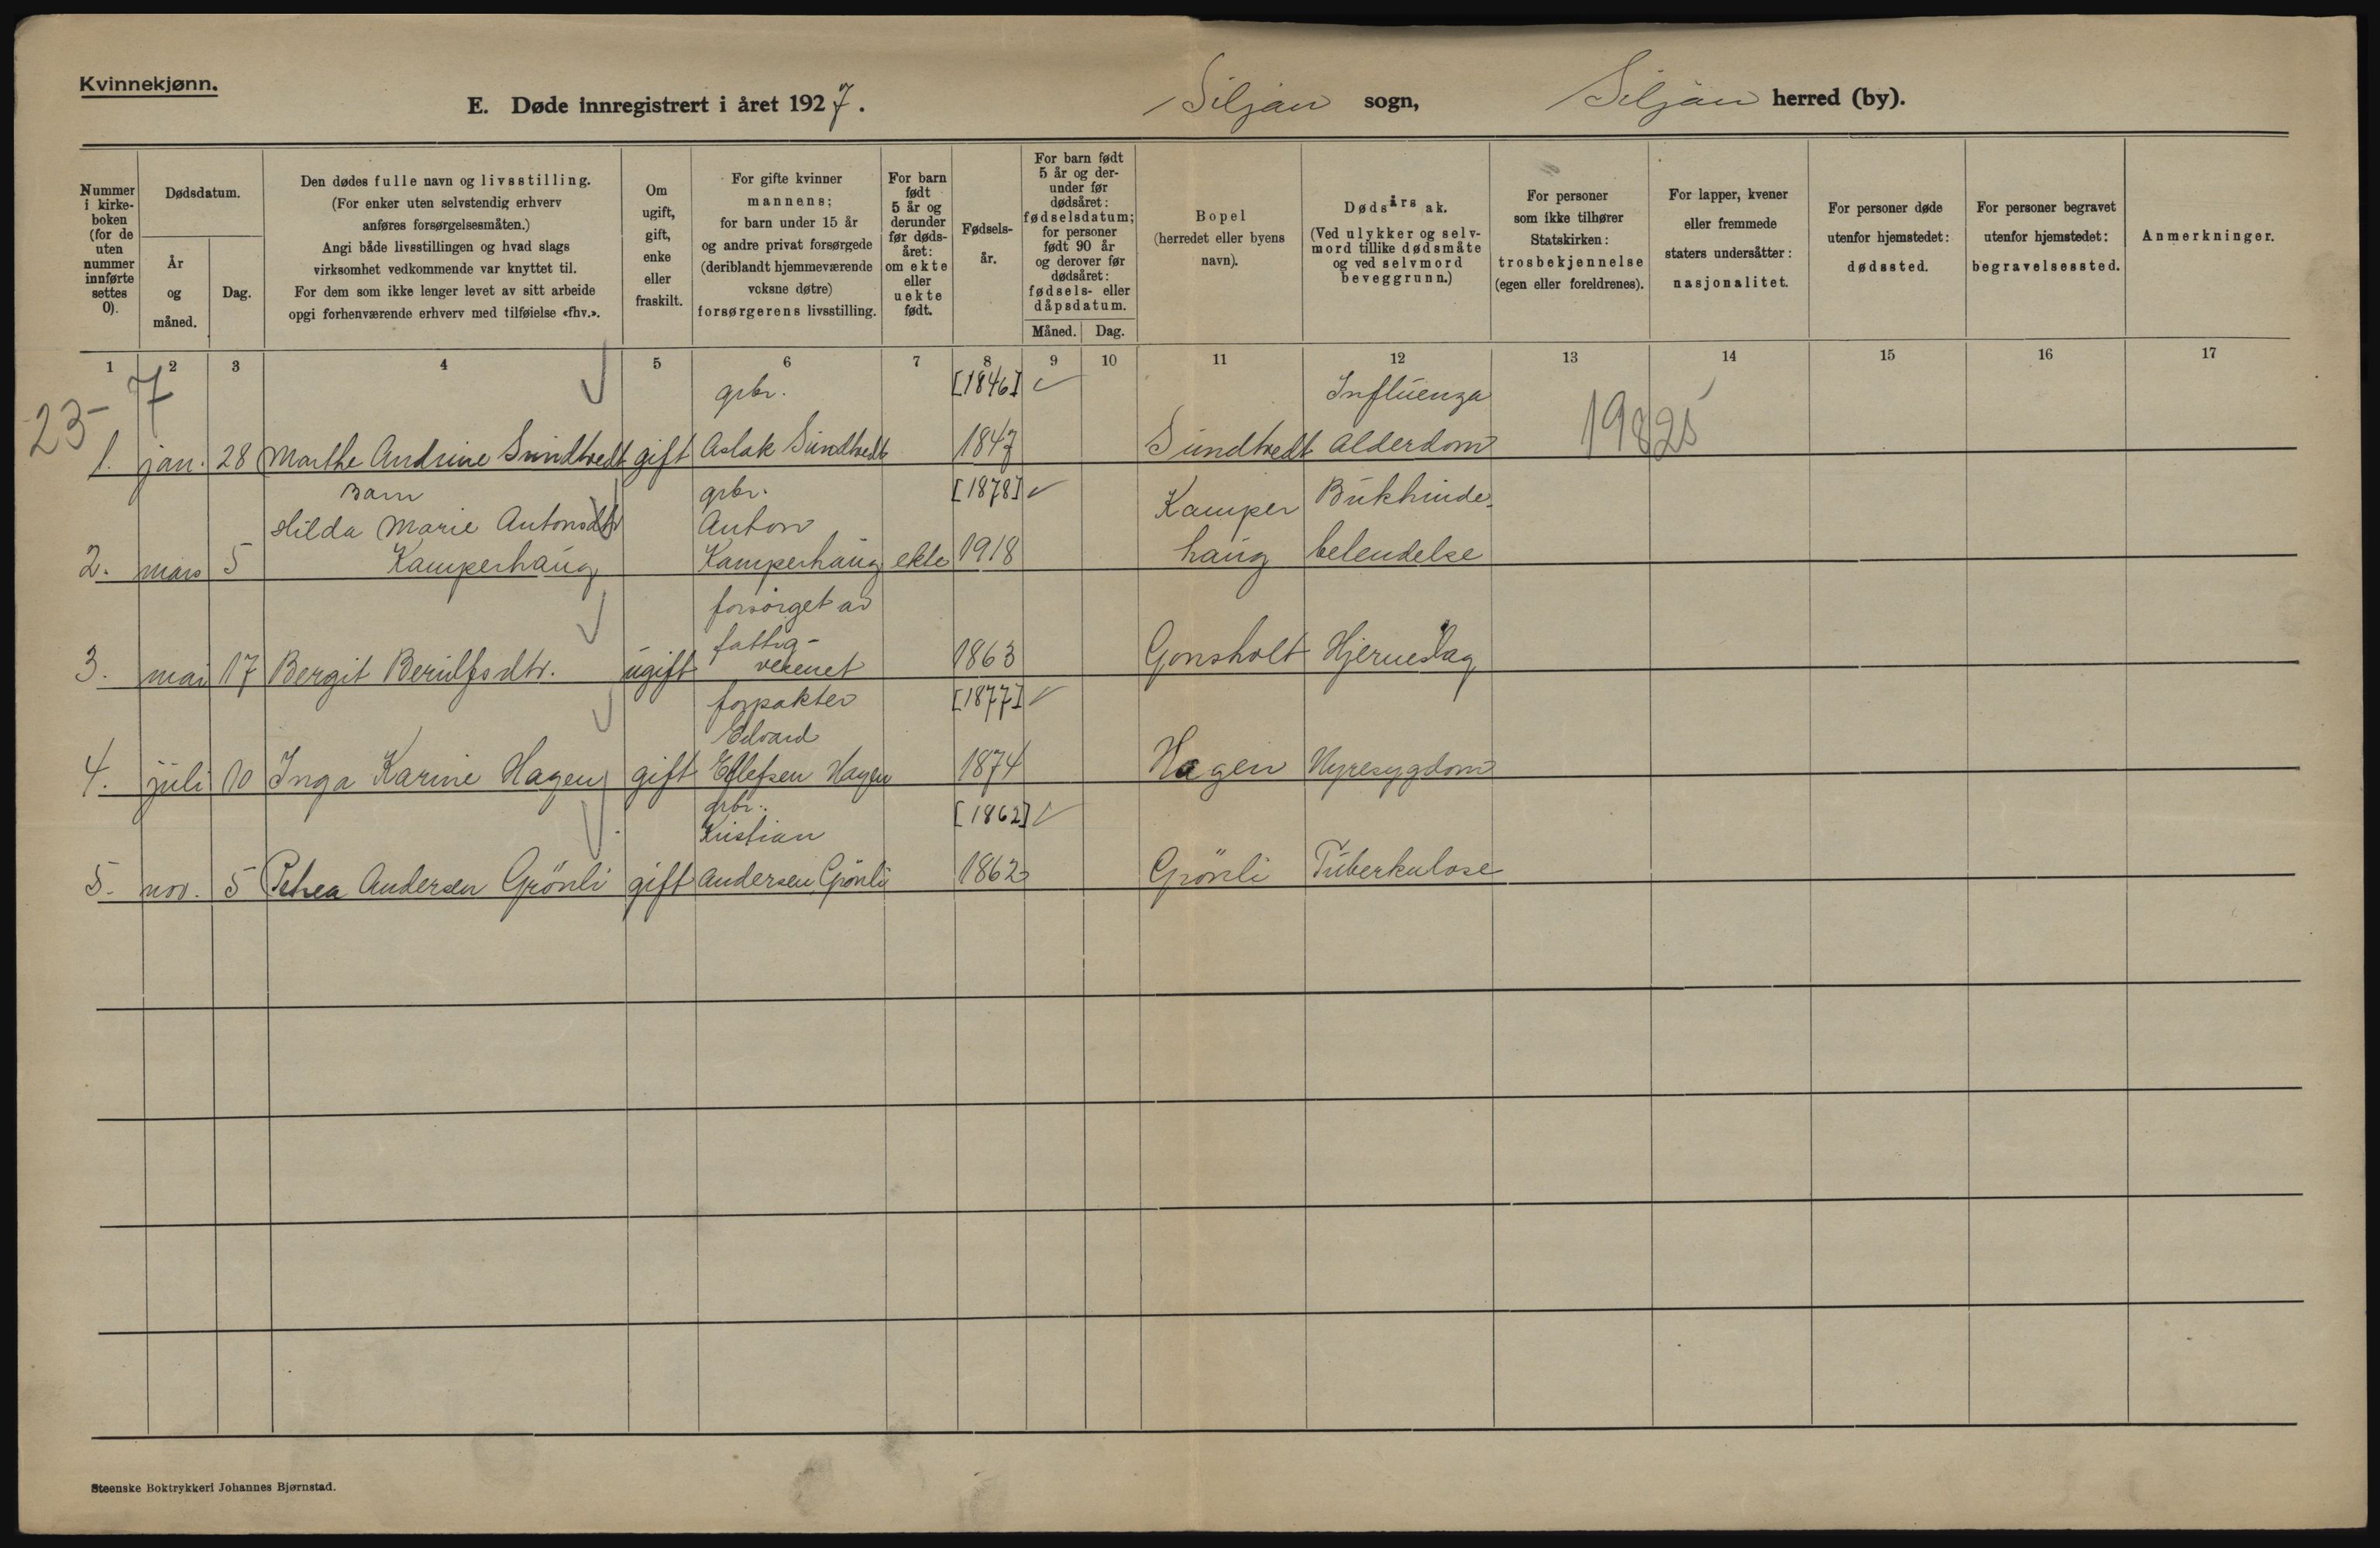 Kvinnekjønn.
E. Døde innregistrert i året 1927. Siljan sogn, Siljan herred (by).
Nummer i kirke-boken (for de uten nummer innførte settes 0).
Dødsdatum.
År og måned.
Dag.
Den dødes fulle navn og livsstilling.
(For enker uten selvstendig erhverv
anføres forsørgelsesmåten.)
Angi både livsstillingen og hvad slags
virksomhet vedkommende var knyttet til.
For dem som ikke lenger levet av sitt arbeide
opgi forhenværende erhverv med tilføielse «fhv.».
Om
ugift,
gift,
enke
eller
fraskilt.
For gifte kvinner
mannens;
for barn under 15 år
og andre privat forsørgede
(deriblandt hjemmeværende
voksne døtre)
forsørgerens livsstilling.
For barn
født
5 år og
derunder
før døds-
året:
om ekte
eller
uekte
født.
Fødsels-
år.
For barn født
5 år og der-
under før
dødsåret:
fødselsdatum;
for personer
født 90 år
og derover før
dødsåret:
fødsels- eller
dåpsdatum.
Måned. Dag.
Bopel
(herredet eller byens
navn).
Dødsårsak.
(Ved ulykker og selv-
mord tillike dødsmåte
og ved selvmord
beveggrunn.)
For personer
som ikke tilhører
Statskirken:
trosbekjennelse
(egen eller foreldrenes).
For lapper, kvener
eller fremmede
staters undersåtter:
nasjonalitet.
For personer døde
utenfor hjemstedet:
dødssted.
For personer begravet
utenfor hjemstedet:
begravelsessted.
Anmerkninger.
1 2 3 4 5 6 7 8 9 10 11 12 13 14 15 16 17
23- 7
gbr. [1846] Influenza
1. jan. 28 Marthe Andrine Sundtvedt gift Aslak Sundtvedt 1847 Sundtvedt Alderdom 19825
Barn gbr. [1878] Kamper Bukhinde-
Hilda Marie Antonsdtr Anton
2. mars 5 Kamperhaug Kamperhaug ekte 1918 haug betendelse
forsørget av
fattig-
3. mai 17 Bergit Berulfsdtr. ugift vesenet 1863 Gonsholt Hjerneslag
forpakter [1877]
Edvard
4. juli 10 Inga Karine Hagen gift Ellefsen Hagen 1874 Hagen Nyresygdom
gbr. [1862]
Kristian
5. nov. 5 Thea Andersen Grönli gift Andersen Grönli 1862 Grönli Tuberkulose
Steenske Boktrykkeri Johannes Bjørnstad.